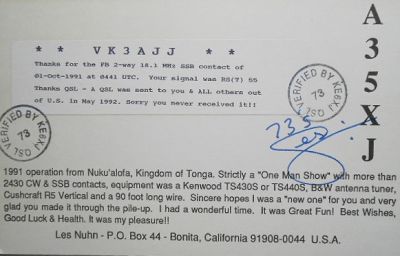 * * VK3AJJ * *
Thanks for the FB 2-way 18.1 MHz SSB contact of
01-Oct-1991 at 0441 UTC. Your signal was RS(T) 55
Thanks QSL - A QSL was sent to you & ALL others out
of U.S. in May 1992. Sorry you never received it!!
A35XJ
QSL VERIFIED BY KE6XJ
73
QSL VERIFIED BY KE6XJ
73
73 5
Les
1991 operation from Nuku'alofa, Kingdom of Tonga. Strictly a "One Man Show" with more than
2430 CW & SSB contacts, equipment was Kenwood TS430S or TS440S, B&W antenna tuner,
Cushcraft R5 Vertical and a 90 foot long wire. Sincere hopes I was a "new one" for you and very
glad you made it through the pile-up. I had a wonderful time. It was Great Fun! Best Wishes,
Good Luck & Health. It was my pleasure!!
Les Nuhn - P.O. Box 44 - Bonita, California 91908-0044 U.S.A.